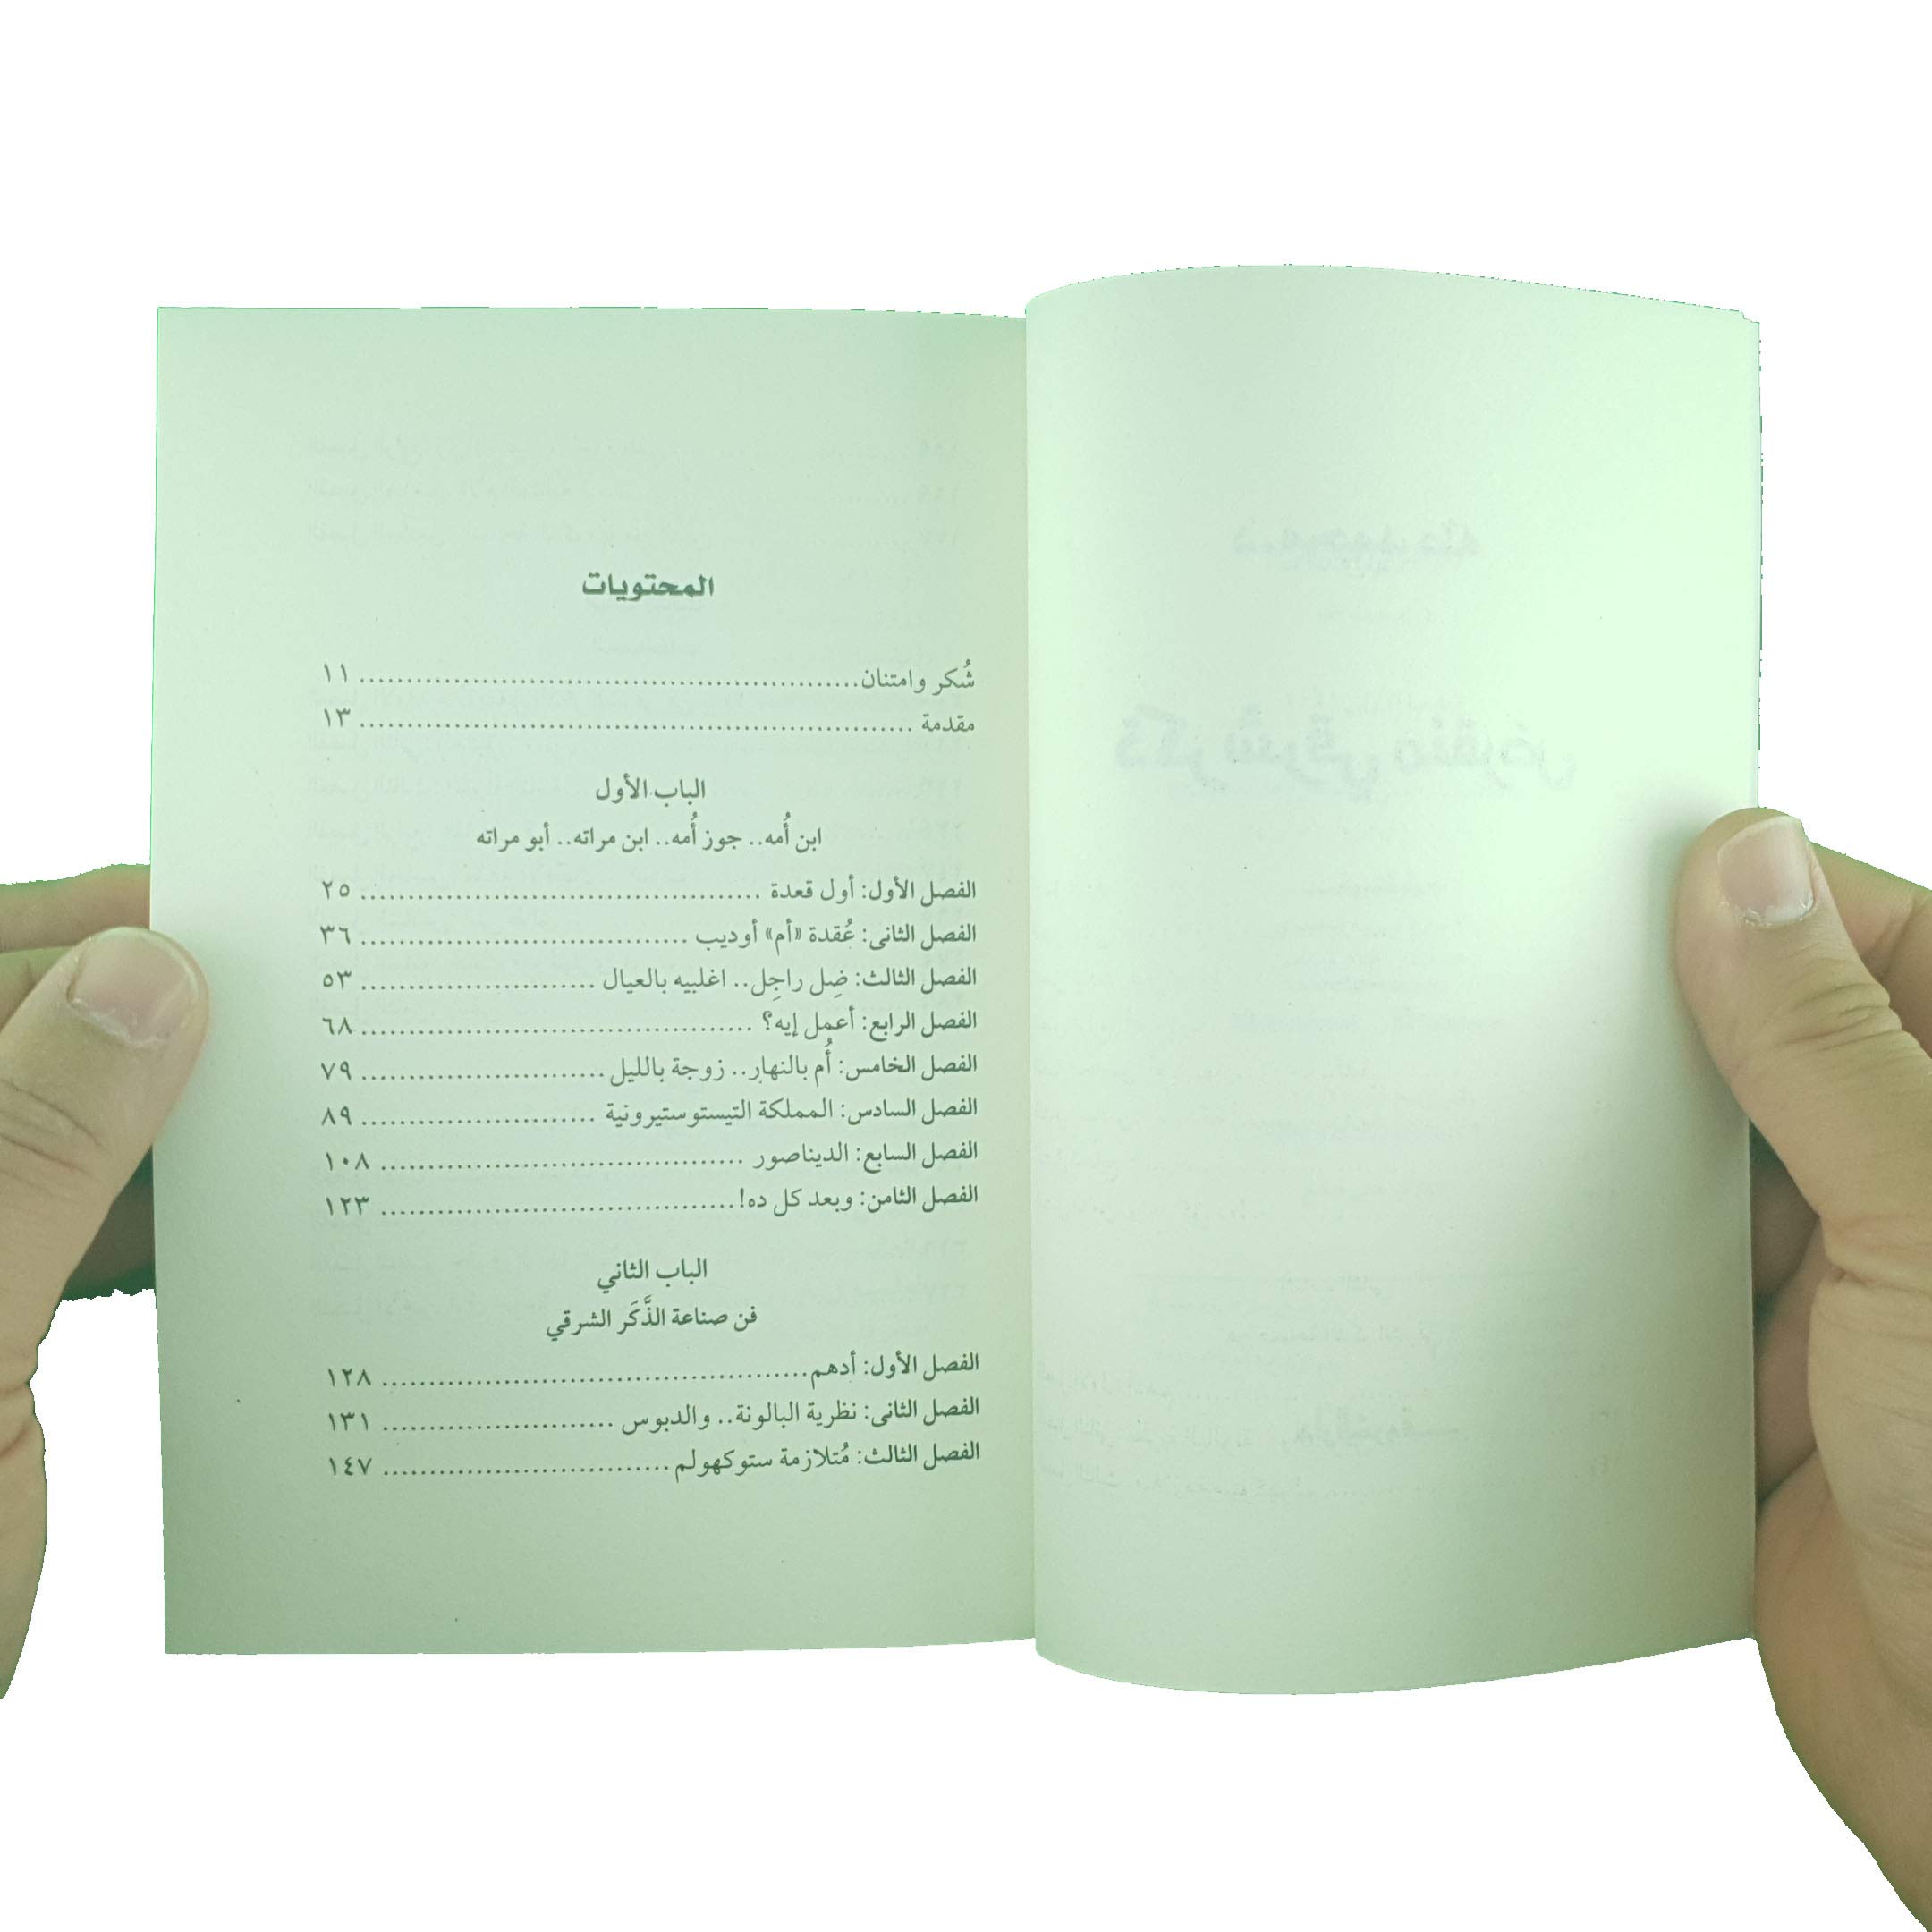 المحتويات
شُكر وامتنان .......................................................... ١١
مقدمة .......................................................... ١٣
الباب الأول
ابن أُمه.. جوز أُمه.. ابن مراته.. أبو مراته
الفصل الأول: أول قعدة .......................................... ٢٥
الفصل الثانى: عُقدة «أم» أوديب .................................. ٣٦
الفصل الثالث: ضِل راجِل.. اغلبيه بالعيال ......................... ٥٣
الفصل الرابع: أعمل إيه؟ .......................................... ٦٨
الفصل الخامس: أُم بالنهار.. زوجة بالليل .......................... ٧٩
الفصل السادس: المملكة التيستوستيرونية ......................... ٨٩
الفصل السابع: الديناصور ...................................... ١٠٨
الفصل الثامن: وبعد كل ده! ...................................... ١٢٣
الباب الثاني
فن صناعة الذَّكَر الشرقي
الفصل الأول: أدهم ............................................. ١٢٨
الفصل الثانى: نظرية البالونة.. والدبوس ......................... ١٣١
الفصل الثالث: مُتلازمة ستوكهولم ............................... ١٤٧